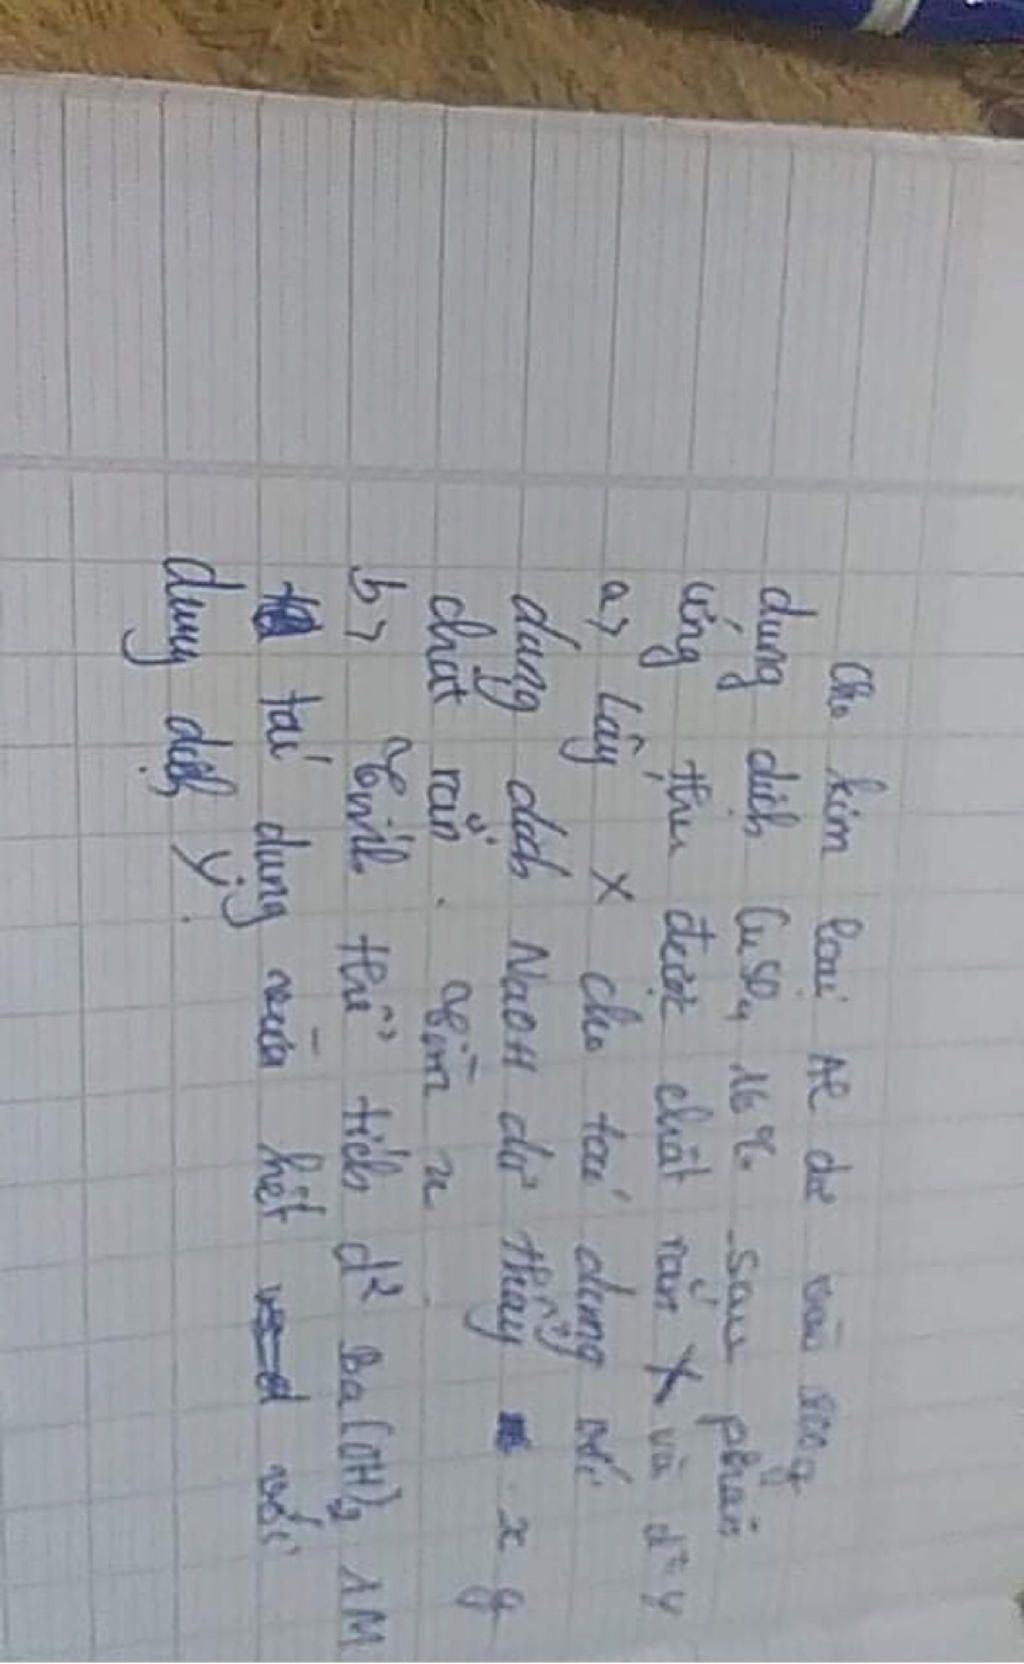 Cho kim loại Al dư vào 200g
dung dịch CuSO4 16%. Sau phản
ứng thu được chất rắn X và d² y
a> Lấy X cho tái dụng với
dung dịch NaOH dư thấy x g
chất rắn. Tìm x
b> Tính thể tích d² Ba(OH)2 1M
tái dụng vừa hết với
dung dịch Y.